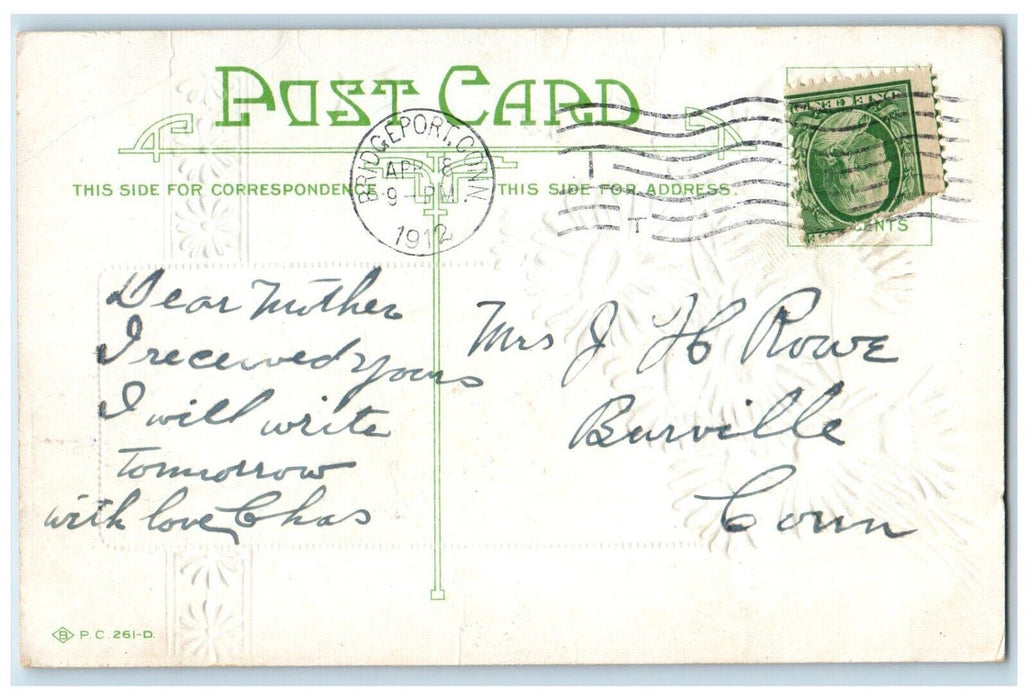 POST CARD
BRIDGEPORT, CONN.
AP 18
9 - PM
1912
THIS SIDE FOR CORRESPONDENCE
THIS SIDE FOR ADDRESS.
CENTS
Dear Mother
I received yours
I will write
Tomorrow
with love, Chas
Mrs J H Rowe
Burville
Conn
B P.C. 261-D.